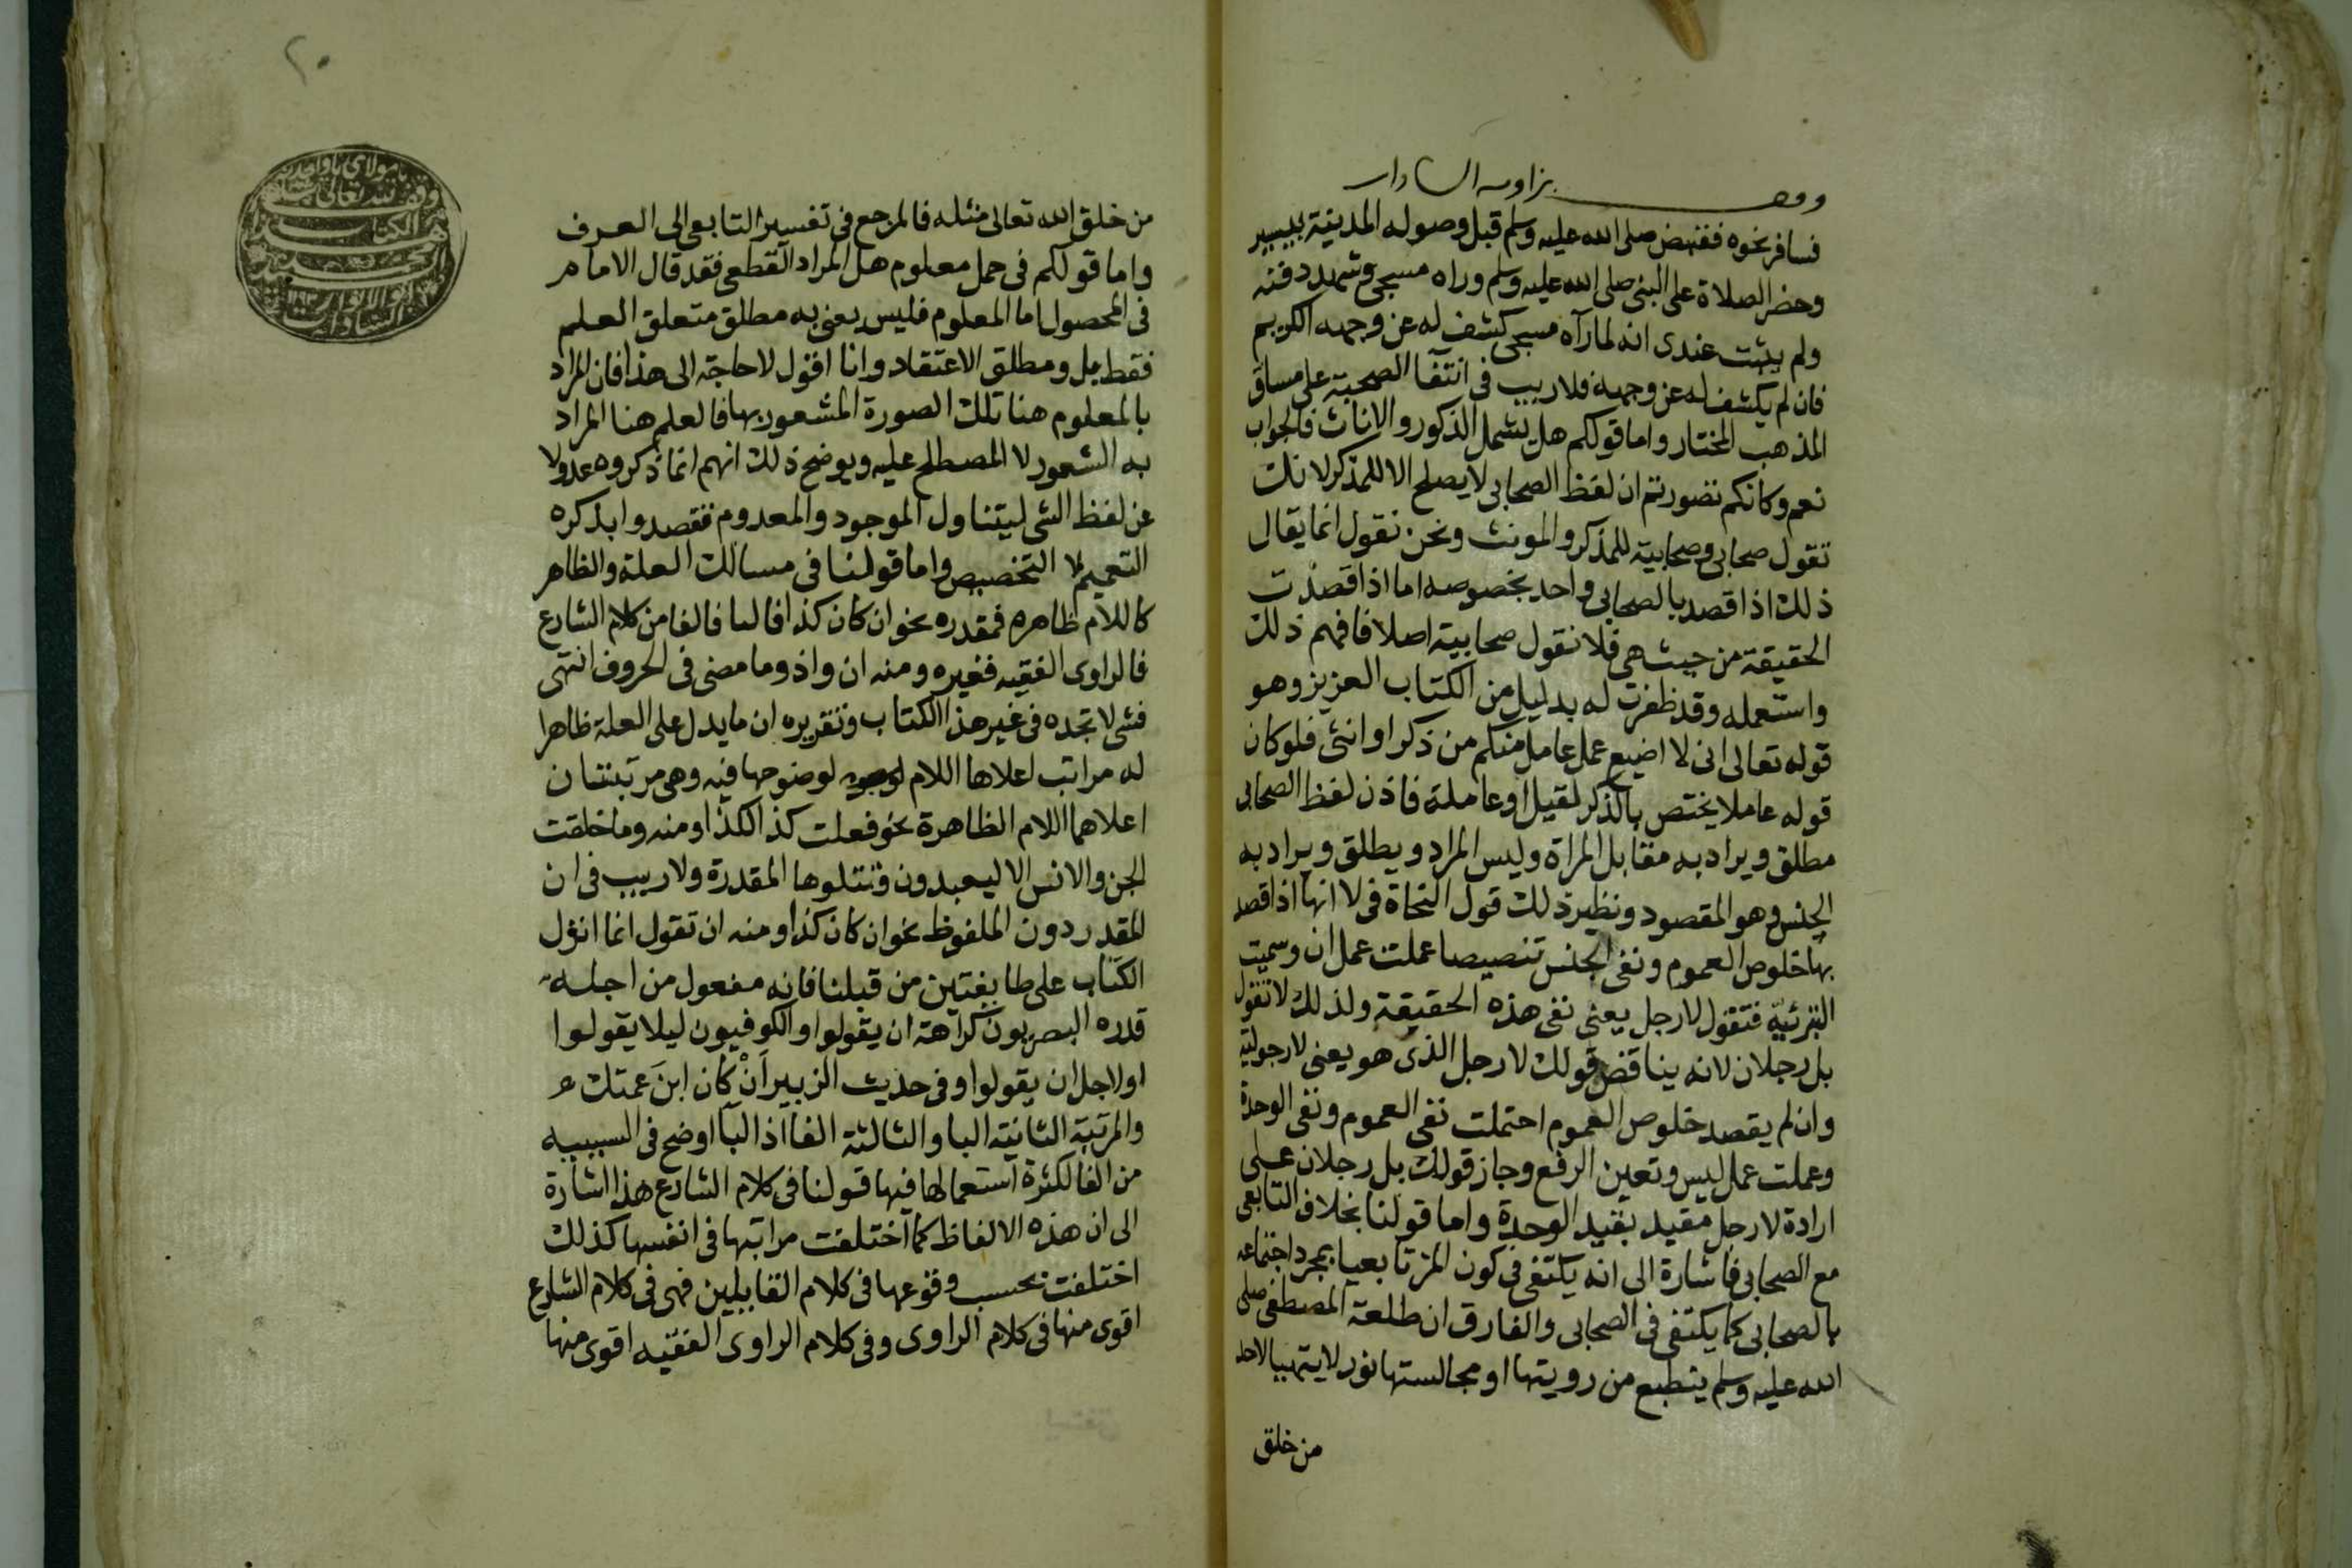 وقف بزاوية السادات
فسافر نحوه فقبض صلى الله عليه وسلم قبل وصوله المدينة بيسير
وحضر الصلاة على النبى صلى الله عليه وسلم وراه مسجى وشهد دفنه
ولم يثبت عندى انه لما رآه مسجى كشف له عن وجهه الكريم
فان لم يكشف له عن وجهه فلا ريب فى انتفآ الصحبة على مساق
المذهب المختار واما قولكم هل يشمل الذكور والاناث فالجواب
نعم وكانكم تصورتم ان لفظ الصحابى لا يصلح الا للمذكر لانك
تقول صحابى وصحابية للمذكر والمونث ونحن نقول انما يقال
ذلك اذا قصد بالصحابى واحد بخصوصه اما اذا قصدت
الحقيقة من حيث هى فلا نقول صحابية اصلا فافهم ذلك
واستعمله وقد ظفرت له بدليل من الكتاب العزيز وهو
قوله تعالى انى لا اضيع عمل عامل منكم من ذكر او انثى فلو كان
قوله عاملا يختص بالذكر لقيل او عاملة فاذن لفظ الصحابى
مطلق ويراد به مقابل المراة وليس المراد ويطلق ويراد به
الجنس وهو المقصود ونظير ذلك قول النحاة فى لا انها اذا قصد
بها خلوص العموم ونفى الجنس تنصيصا عملت عمل ان وسميت
التبرئيه فتقول لا رجل يعنى نفى هذه الحقيقة ولذلك لا تقول
بل رجلان لانه يناقض قولك لا رجل الذى هو يعنى لا رجولية
وان لم يقصد خلوص العموم احتملت نفى العموم ونفى الوحدة
وعملت عمل ليس وتعين الرفع وجاز قولك بل رجلان على
ارادة لا رجل مقيد بقيد الوحدة واما قولنا بخلاف التابعى
مع الصحابى فاشارة الى انه يكتفى فى كون المرء تابعيا بمجرد اجتماعه
بالصحابى كما يكتفى فى الصحابى والفارق ان طلعة المصطفى صلى
الله عليه وسلم ينطبع من رويتها او مجالستها نور لا يتهيا لاحد
من خلق
٢٠
من خلق الله تعالى مثله فالمرجع فى تفسير التابعى الى العرف
واما قولكم فى حمل معلوم هل المراد القطعى فقد قال الامام
فى المحصول اما المعلوم فليس يعنى به مطلق متعلق العلم
فقط بل ومطلق الاعتقاد وانا اقول لا حاجة الى هذا فان المراد
بالمعلوم هنا تلك الصورة المشعور بها فالعلم هنا المراد
به الشعور لا المصطلح عليه ويوضح ذلك انهم انما ذكروه عدولا
عن لفظ الشى ليتناول الموجود والمعدوم فقصدوا بذكره
التعميم لا التخصيص واما قولنا فى مسالك العلة والظاهر
كاللام ظاهره فمقدره نحو ان كان كذا فالبا فالفا من كلام الشارع
فالراوى الفقيه فغيره ومنه ان واذ وما مضى فى الحروف انتهى
فشى لا تجده فى غير هذا الكتاب وتقريره ان ما يدل على العلة ظاهرا
له مراتب اعلاها اللام لوضوحها فيه وهى مرتبتان
اعلاهما اللام الظاهرة نحو فعلت كذا لكذا ومنه وما خلقت
الجن والانس الا ليعبدون وتتلوها المقدرة ولا ريب فى ان
المقدر دون الملفوظ نحو ان كان كذا ومنه ان تقول انما انزل
الكتاب على طايفتين من قبلنا فانه مفعول من اجله
قدره البصريون كراهة ان يقولوا والكوفيون ليلا يقولوا
او لاجل ان يقولوا وفى حديث الزبير اَنْ كان ابنَ عمتك
والمرتبة الثانية البا والثالثة الفا اذ البآ اوضح فى السببيه
من الفا لكثرة استعمالها فيها قولنا فى كلام الشارع هذا اشارة
الى ان هذه الالفاظ كما اختلفت مراتبها فى انفسها كذلك
اختلفت بحسب وقوعها فى كلام القايلين فهى فى كلام الشارع
اقوى منها فى كلام الراوى وفى كلام الراوى الفقيه اقوى منها